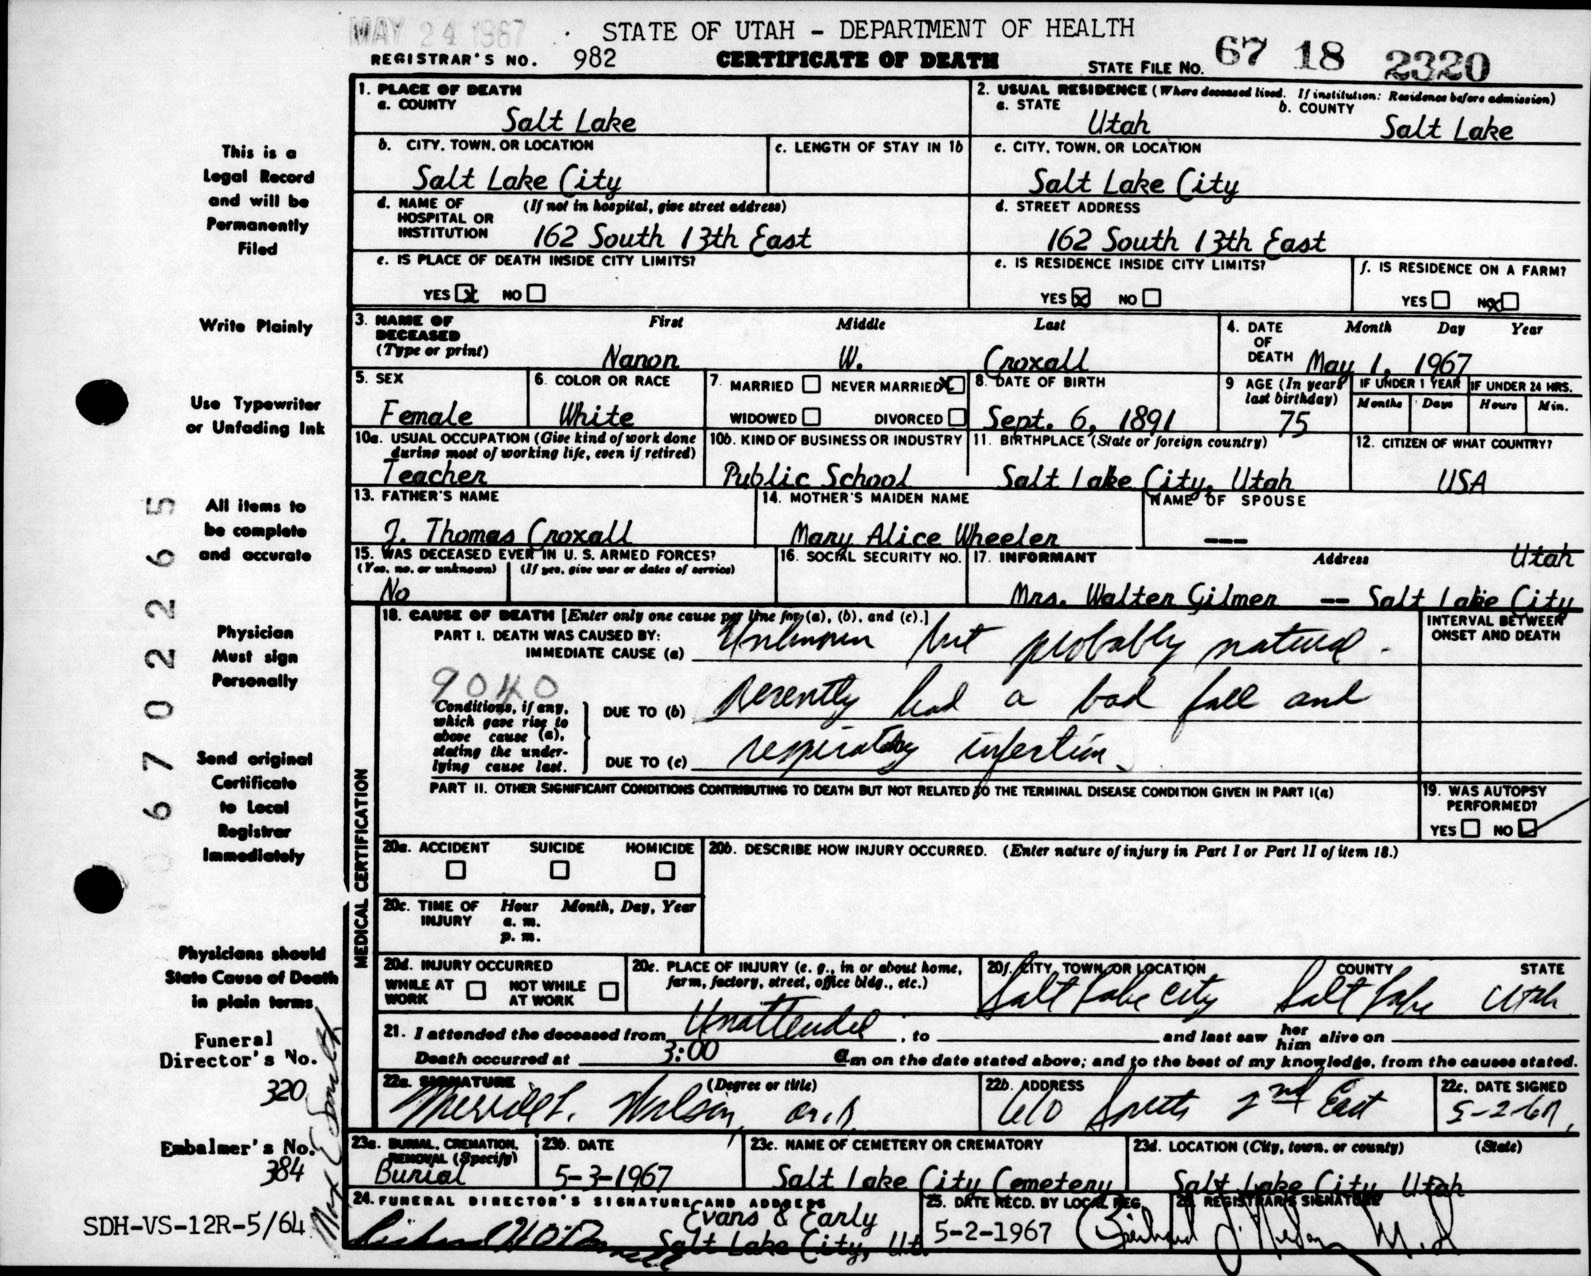 MAY 24 1967
STATE OF UTAH - DEPARTMENT OF HEALTH
REGISTRAR'S NO. 982 CERTIFICATE OF DEATH STATE FILE NO. 67 18 2320
This is a
Legal Record
and will be
Permanently
Filed
Write Plainly
Use Typewriter
or Unfading Ink
All items to
be complete
and accurate
Physician
Must sign
Personally
Send original
Certificate
to Local
Registrar
Immediately
Physicians should
State Cause of Death
in plain terms
Funeral
Director's No.
320
Embalmer's No.
384
SDH-VS-12R-5/64
067022265
1. PLACE OF DEATH
a. COUNTY
Salt Lake
2. USUAL RESIDENCE (Where deceased lived. If institution: Residence before admission)
a. STATE b. COUNTY
Utah Salt Lake
b. CITY, TOWN, OR LOCATION c. LENGTH OF STAY IN 1b
Salt Lake City
c. CITY, TOWN, OR LOCATION
Salt Lake City
d. NAME OF HOSPITAL OR INSTITUTION (If not in hospital, give street address)
162 South 13th East
d. STREET ADDRESS
162 South 13th East
e. IS PLACE OF DEATH INSIDE CITY LIMITS?
YES X NO
e. IS RESIDENCE INSIDE CITY LIMITS?
YES X NO
f. IS RESIDENCE ON A FARM?
YES NO X
3. NAME OF DECEASED (Type or print) First Middle Last
Nanon W. Croxall
4. DATE OF DEATH Month Day Year
May 1, 1967
5. SEX
Female
6. COLOR OR RACE
White
7. MARRIED NEVER MARRIED X
WIDOWED DIVORCED
8. DATE OF BIRTH
Sept. 6, 1891
9 AGE (In years last birthday)
75
IF UNDER 1 YEAR IF UNDER 24 HRS.
Months Days Hours Min.
10a. USUAL OCCUPATION (Give kind of work done during most of working life, even if retired)
Teacher
10b. KIND OF BUSINESS OR INDUSTRY
Public School
11. BIRTHPLACE (State or foreign country)
Salt Lake City, Utah
12. CITIZEN OF WHAT COUNTRY?
USA
13. FATHER'S NAME
J. Thomas Croxall
14. MOTHER'S MAIDEN NAME
Mary Alice Wheeler
NAME OF SPOUSE
---
15. WAS DECEASED EVER IN U. S. ARMED FORCES?
(Yes, no, or unknown) (If yes, give war or dates of service)
No
16. SOCIAL SECURITY NO.
17. INFORMANT Address
Mrs. Walter Gilmer -- Salt Lake City Utah
MEDICAL CERTIFICATION
18. CAUSE OF DEATH [Enter only one cause per line for (a), (b), and (c).]
PART I. DEATH WAS CAUSED BY:
IMMEDIATE CAUSE (a) Unknown but probably natural.
9040
Conditions, if any, which gave rise to above cause (a), stating the underlying cause last.
DUE TO (b) Recently had a bad fall and
DUE TO (c) respiratory infection.
INTERVAL BETWEEN ONSET AND DEATH
PART II. OTHER SIGNIFICANT CONDITIONS CONTRIBUTING TO DEATH BUT NOT RELATED TO THE TERMINAL DISEASE CONDITION GIVEN IN PART I(a)
19. WAS AUTOPSY PERFORMED?
YES NO ✓
20a. ACCIDENT SUICIDE HOMICIDE
20b. DESCRIBE HOW INJURY OCCURRED. (Enter nature of injury in Part I or Part II of item 18.)
20c. TIME OF INJURY Hour Month, Day, Year
a. m.
p. m.
20d. INJURY OCCURRED
WHILE AT WORK NOT WHILE AT WORK
20e. PLACE OF INJURY (e. g., in or about home, farm, factory, street, office bldg., etc.)
20f. CITY, TOWN, OR LOCATION COUNTY STATE
Salt Lake City Salt Lake Utah
21. I attended the deceased from Unattended, to and last saw her him alive on
Death occurred at 3:00 am on the date stated above; and to the best of my knowledge, from the causes stated.
22a. SIGNATURE (Degree or title)
Merrill L. Wilson, M.D.
22b. ADDRESS
610 South 2nd East
22c. DATE SIGNED
5-2-67
23a. BURIAL, CREMATION, REMOVAL (Specify)
Burial
23b. DATE
5-3-1967
23c. NAME OF CEMETERY OR CREMATORY
Salt Lake City Cemetery
23d. LOCATION (City, town, or county) (State)
Salt Lake City, Utah
24. FUNERAL DIRECTOR'S SIGNATURE AND ADDRESS
Evans & Early
Salt Lake City, Ut.
25. DATE RECD. BY LOCAL REG.
5-2-1967
26. REGISTRAR'S SIGNATURE